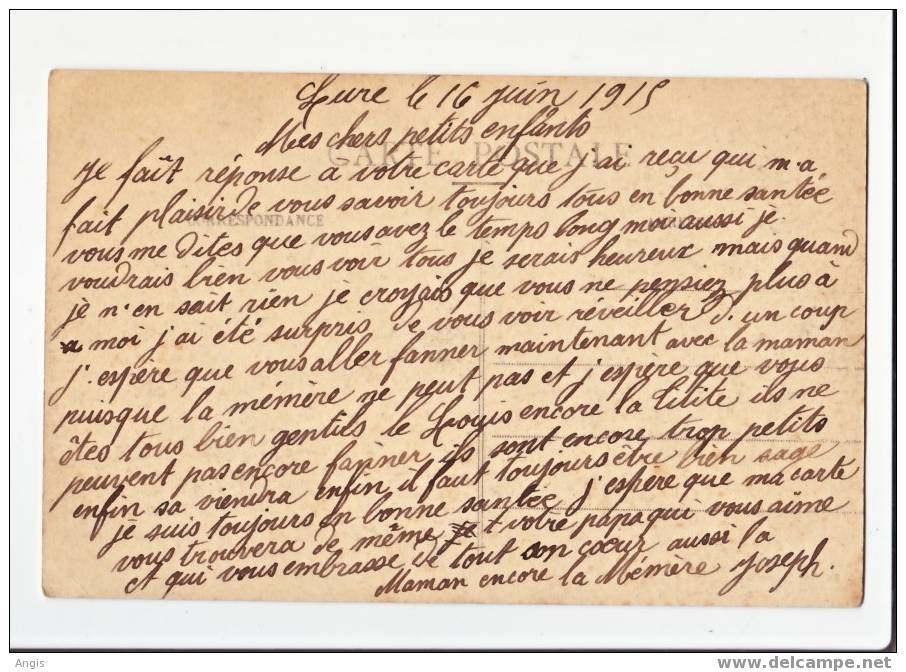 Lure le 16 juin 1915
Mes chers petits enfants
CARTE POSTALE
Je faît réponse a votre carte que j'ai reçu qui m'a
fait plaisir de vous savoir toujours tous en bonne santée
CORRESPONDANCE
vous me dites que vous avez le temps long moi aussi je
voudrais bien vous voir tous je serais heureux mais quand
je n'en sait rien je croyais que vous ne pensiez plus à
a moi j'ai été surpris de vous voir réveiller d'un coup
j'espère que vous aller fanner maintenant avec la maman
puisque la mémère ne peut pas et j'espère que vous
êtes tous bien gentils le Louis encore la Titite ils ne
peuvent pas encore fanner ils sont encore trop petits
enfin sa viendra enfin il faut toujours être bien sage
je suis toujours en bonne santée j'espère que ma carte
vous trouvera de même votre papa qui vous aîme
et qui vous embrasse de tout son cœur aussi la
Maman encore la Mémère Joseph.
Angis
www.delcampe.net